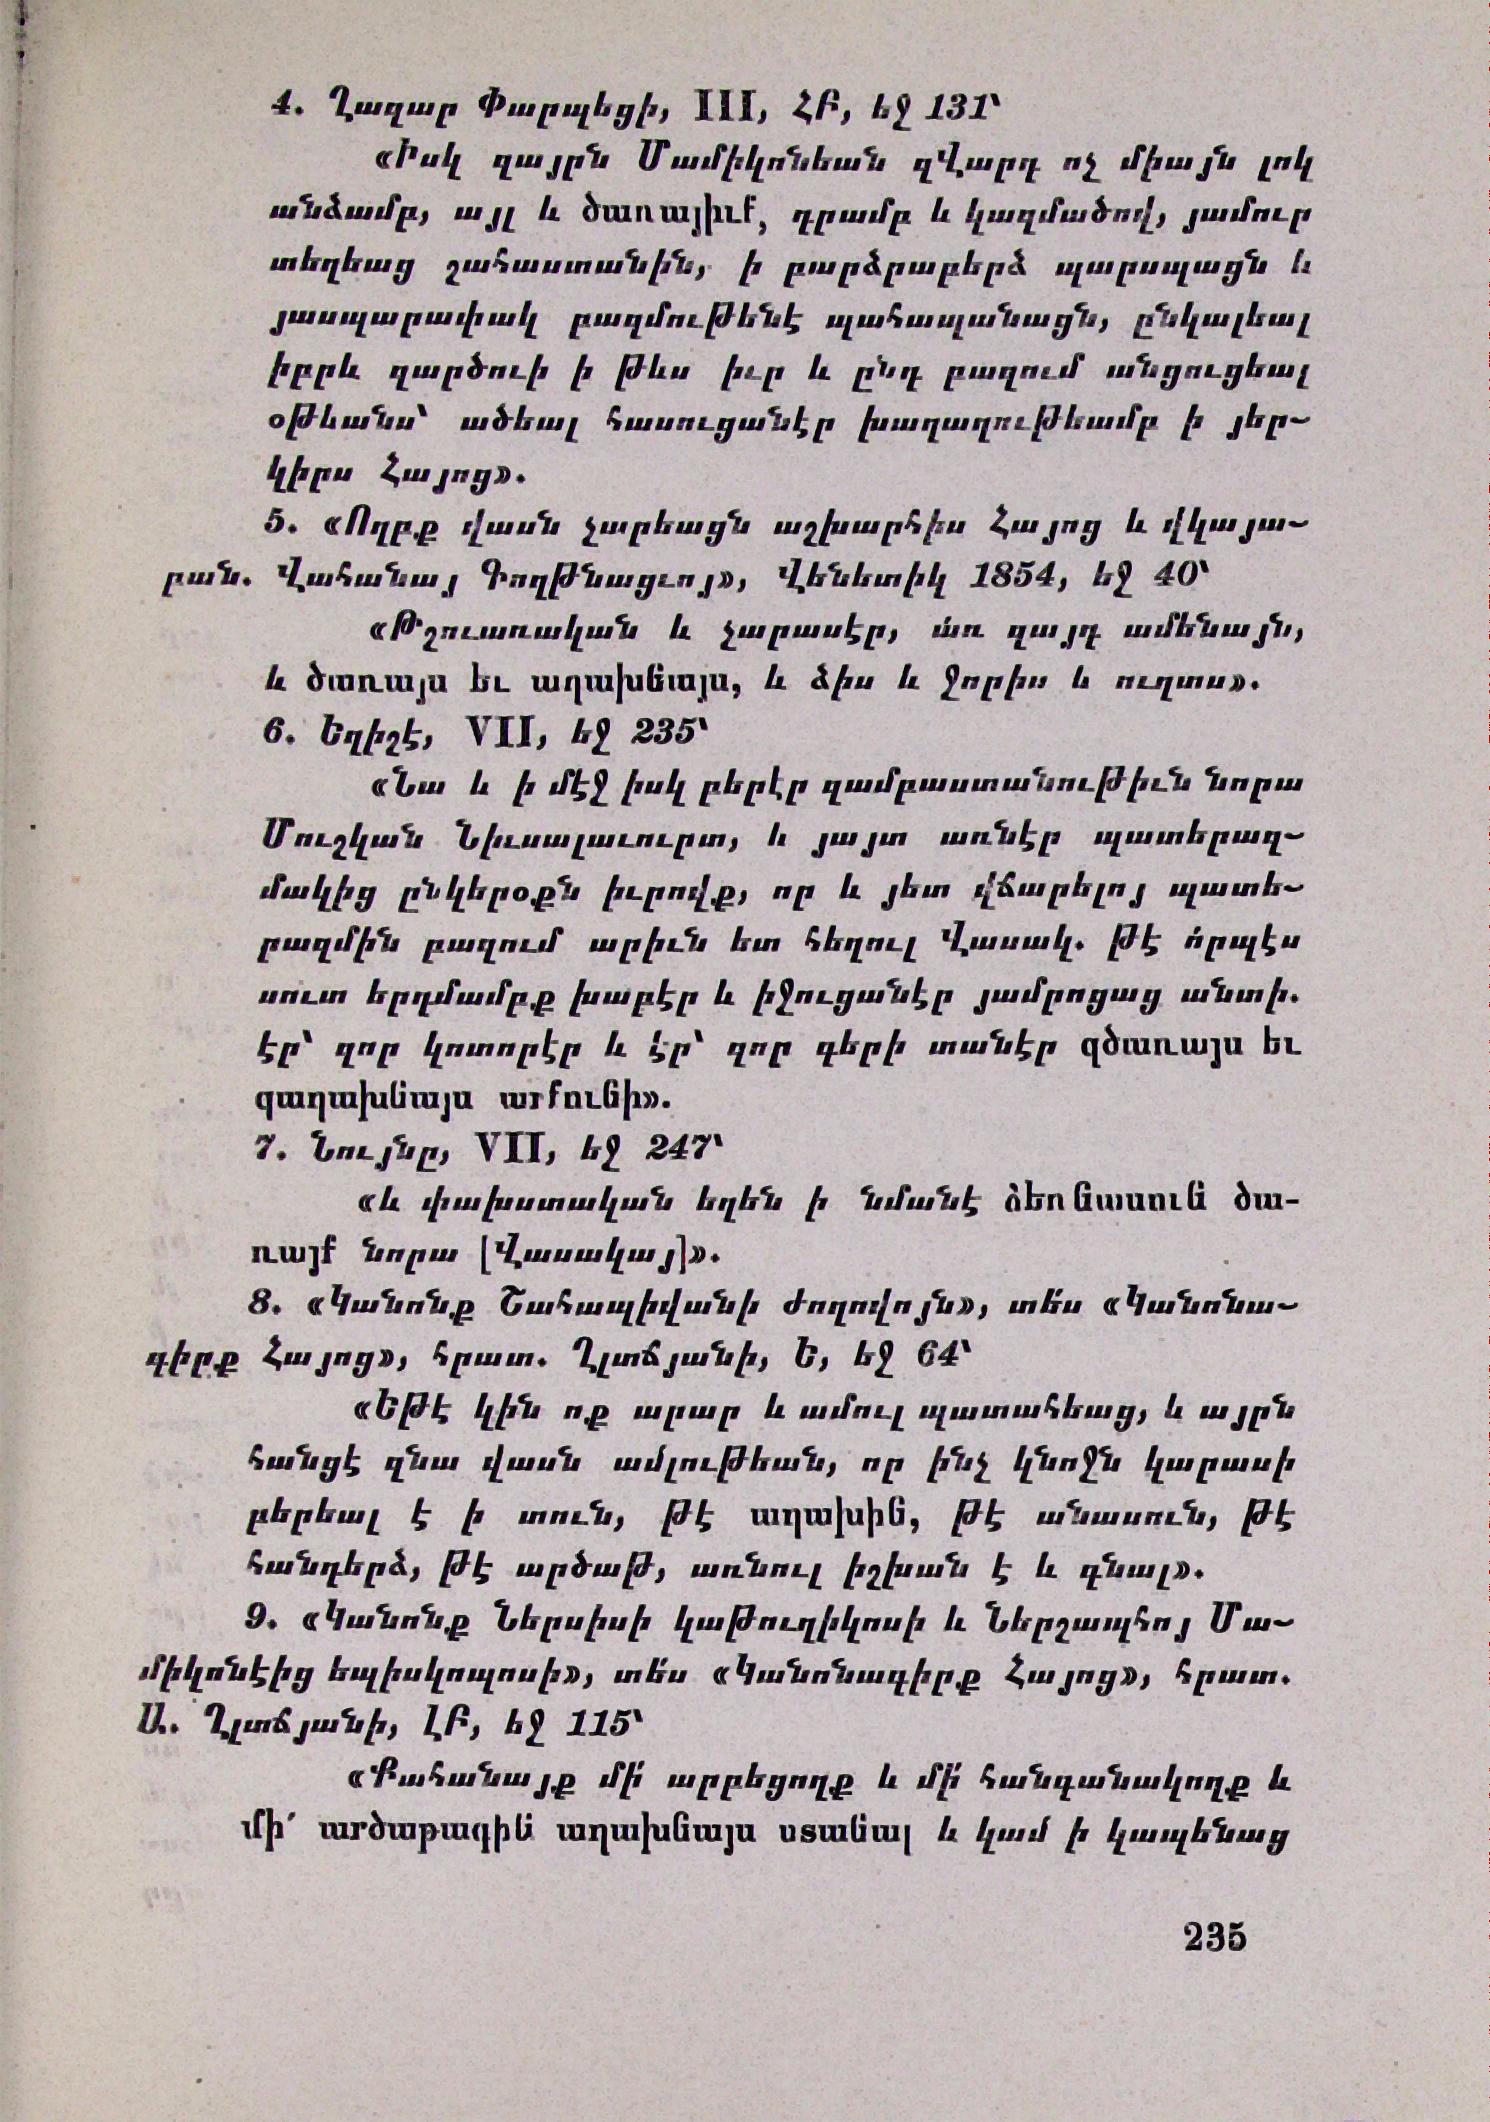 4. Ղազար Փարպեցի, III, ՀԲ, եջ 131՝
«Իսկ զայրն Մամիկոնեան զՎարդ ոչ միայն լոկ
անձամբ, այլ և ծառայիւք, դրամբ և կազմածով, յամուր
տեղեաց շահաստանին, ի բարձրաբերձ պարսպացն և
յասպարափակ բազմութենէ պահապանացն, ընկալեալ
իբրև զարծուի ի թևս իւր և ընդ բազում անցուցեալ
օթևանս՝ ածեալ հասուցանէր խաղաղութեամբ ի յեր-
կիրս Հայոց».
5. «Ողբք վասն չարեացն աշխարհիս Հայոց և վկայա-
բան. Վահանայ Գողթնացւոյ», Վենետիկ 1854, եջ 40՝
«Թշուառական և չարասէր, առ զայդ ամենայն,
և ծառայս եւ աղախնայս, և ձիս և ջորիս և ուղտս».
6. Եղիշէ, VII, եջ 235՝
«Նա և ի մէջ իսկ բերէր զամբաստանութիւն նորա
Մուշկան Նիւսալաւուրտ, և յայտ առնէր պատերազ-
մակից ընկերօքն իւրովք, որ և յետ վճարելոյ պատե-
րազմին բազում արիւն ետ հեղուլ Վասակ. թէ ո՛րպէս
սուտ երդմամբք խաբէր և իջուցանէր յամրոցաց անտի.
էր՝ զոր կոտորէր և էր՝ զոր գերի տանէր զծառայս եւ
զաղախնայս արքունի».
7. Նույնը, VII, եջ 247՝
«և փախստական եղեն ի նմանէ ձեռնասուն ծա-
ռայք նորա [Վասակայ]».
8. «Կանոնք Շահապիվանի ժողովոյն», տե՛ս «Կանոնա-
գիրք Հայոց», հրատ. Ղլտճյանի, Ե, եջ 64՝
«Եթէ կին ոք արար և ամուլ պատահեաց, և այրն
հանցէ զնա վասն ամլութեան, որ ինչ կնոջն կարասի
բերեալ է ի տուն, թէ աղախին, թէ անասուն, թէ
հանդերձ, թէ արծաթ, առնուլ իշխան է և գնալ».
9. «Կանոնք Ներսիսի կաթուղիկոսի և Ներշապհոյ Մա-
միկոնէից եպիսկոպոսի», տե՛ս «Կանոնագիրք Հայոց», հրատ.
Ա. Ղլտճյանի, ԼԲ, եջ 115՝
«Քահանայք մի՛ արբեցողք և մի՛ հանգանակողք և
մի՛ արծաթագին աղախնայս ստանալ և կամ ի կապենաց
235